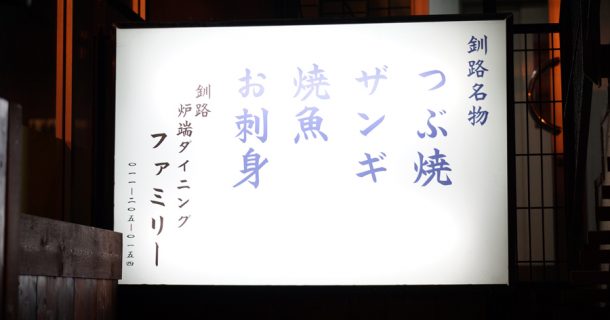 釧路名物
つぶ焼
ザンギ
焼魚
お刺身
釧路
炉端ダイニング
ファミリー
〇一一ー二〇五ー〇一五四